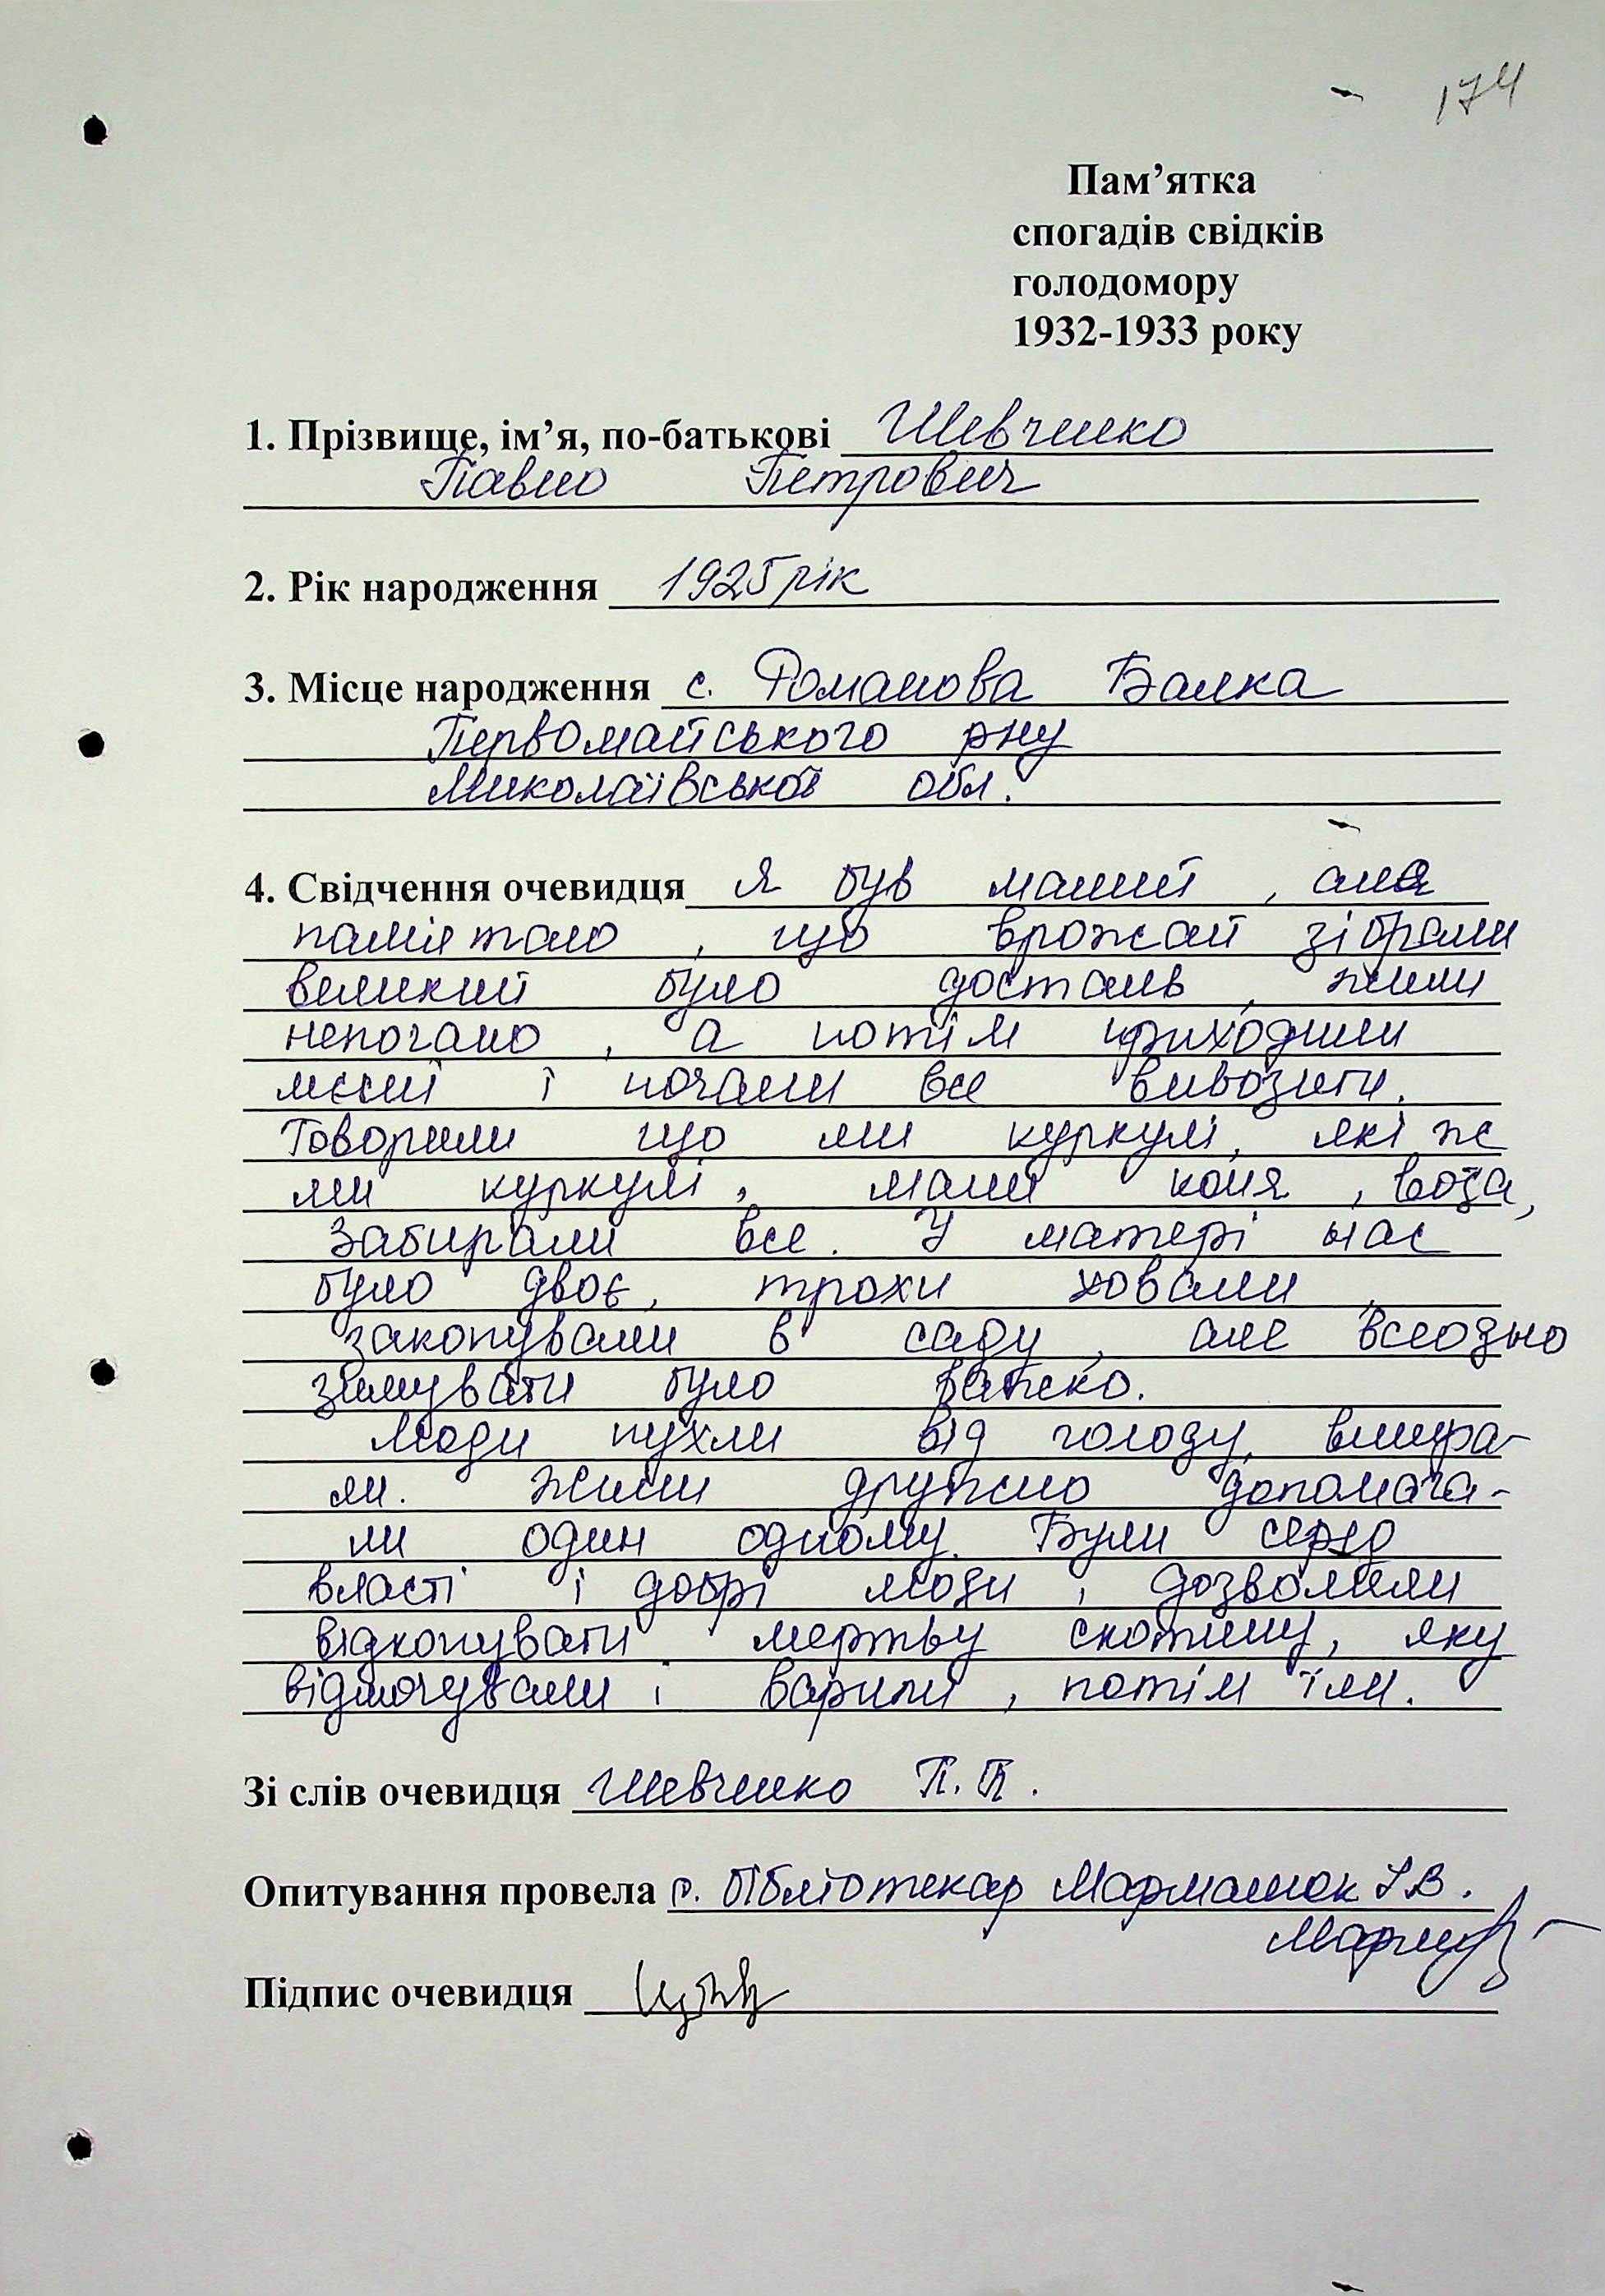 174
Пам’ятка
спогадів свідків
голодомору
1932-1933 року
1. Прізвище, ім’я, по-батькові Шевченко
Павло Петрович
2. Рік народження 1925 рік
3. Місце народження с. Романова Балка
Первомайського рну
Миколаївської обл.
4. Свідчення очевидця я був малий, але
памятаю, що врожай зібрали
великий було достаць, жили
непогано, а потім приходили
мєсні і почали все вивозити.
Говорили що ми куркулі, які ж
ми куркулі, мали коня, воза,
забирали все. У матері нас
було двоє, трохи ховали,
закопували в саду, але всеодно
зимувати було важко.
Люди пухли від голоду, вмира-
ли. Жили дружно допомога-
ли один одному. Були серед
власті і добрі люди, дозволили
відкопувати мертву скотину, яку
відмочували і варили, потім їли.
Зі слів очевидця Шевченко П. П.
Опитування провела р. бібліотекар Мармалюк І.В.
Підпис очевидця